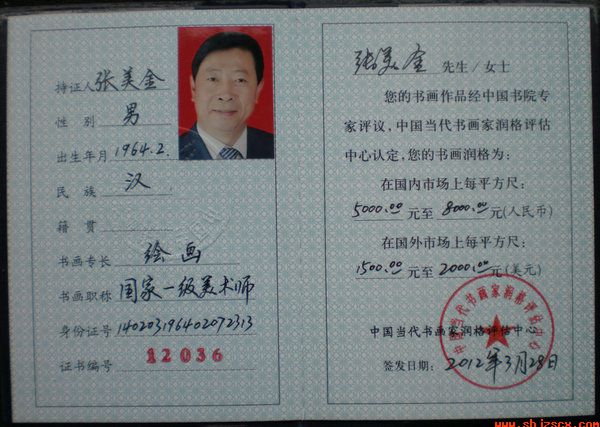 持证人 张美金
性 别 男
出生年月 1964.2.
民 族 汉
籍 贯
书画专长 绘画
书画职称 国家一级美术师
身份证号 140203196402072313
证书编号 12036
张美金 先生/女士
您的书画作品经中国书院专
家评议，中国当代书画家润格评估
中心认定，您的书画润格为：
在国内市场上每平方尺：
5000.00 元至 8000.00 元(人民币)
在国外市场上每平方尺：
1500.00 元至 2000.00 元(美元)
中国当代书画家润格评估中心
中国当代书画家润格评估中心
签发日期： 2012年3月28日
www.shjzscx.com